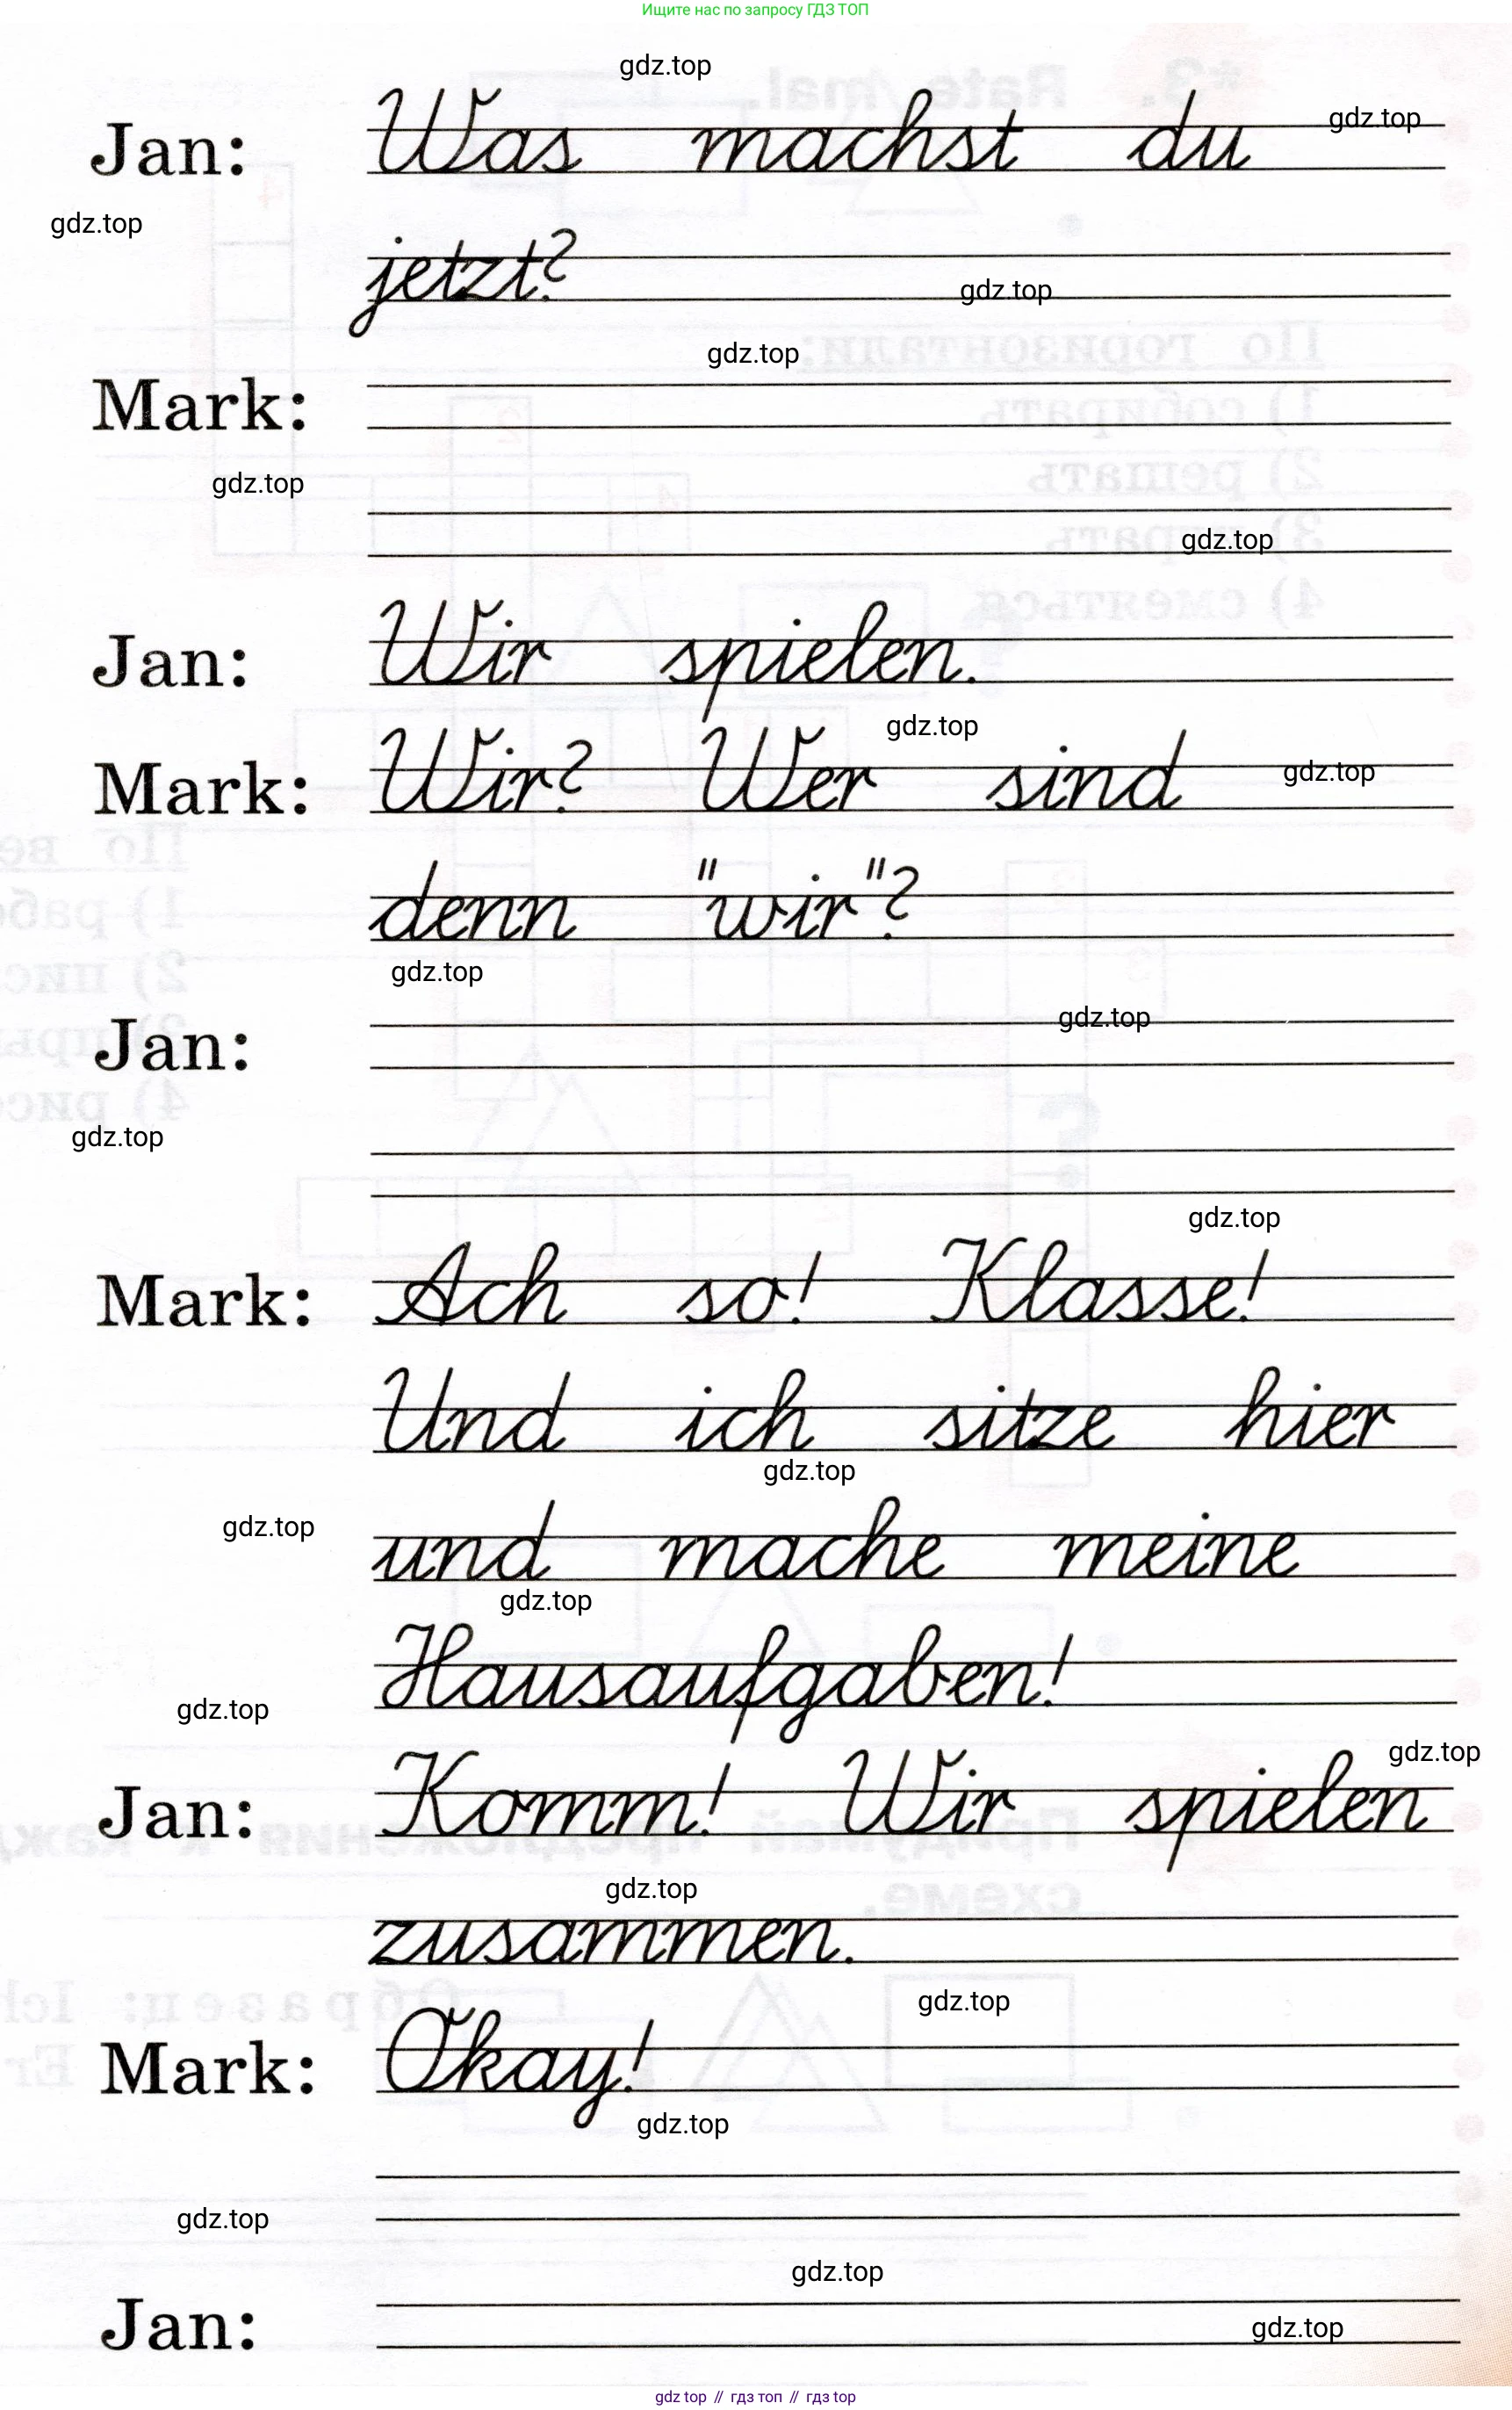 Ищите нас по запросу ГДЗ ТОП
gdz.top
Jan: Was machst du
gdz.top
gdz.top
jetzt?
gdz.top
gdz.top
Mark:
gdz.top
gdz.top
Jan: Wir spielen.
gdz.top
Mark: Wir? Wer sind
gdz.top
denn "wir"?
gdz.top
gdz.top
Jan:
gdz.top
gdz.top
Mark: Ach so! Klasse!
Und ich sitze hier
gdz.top
gdz.top
und mache meine
gdz.top
Hausaufgaben!
gdz.top
gdz.top
Jan: Komm! Wir spielen
gdz.top
zusammen.
gdz.top
Mark: Okay!
gdz.top
gdz.top
gdz.top
Jan:
gdz.top
gdz top // гдз топ // гдз top